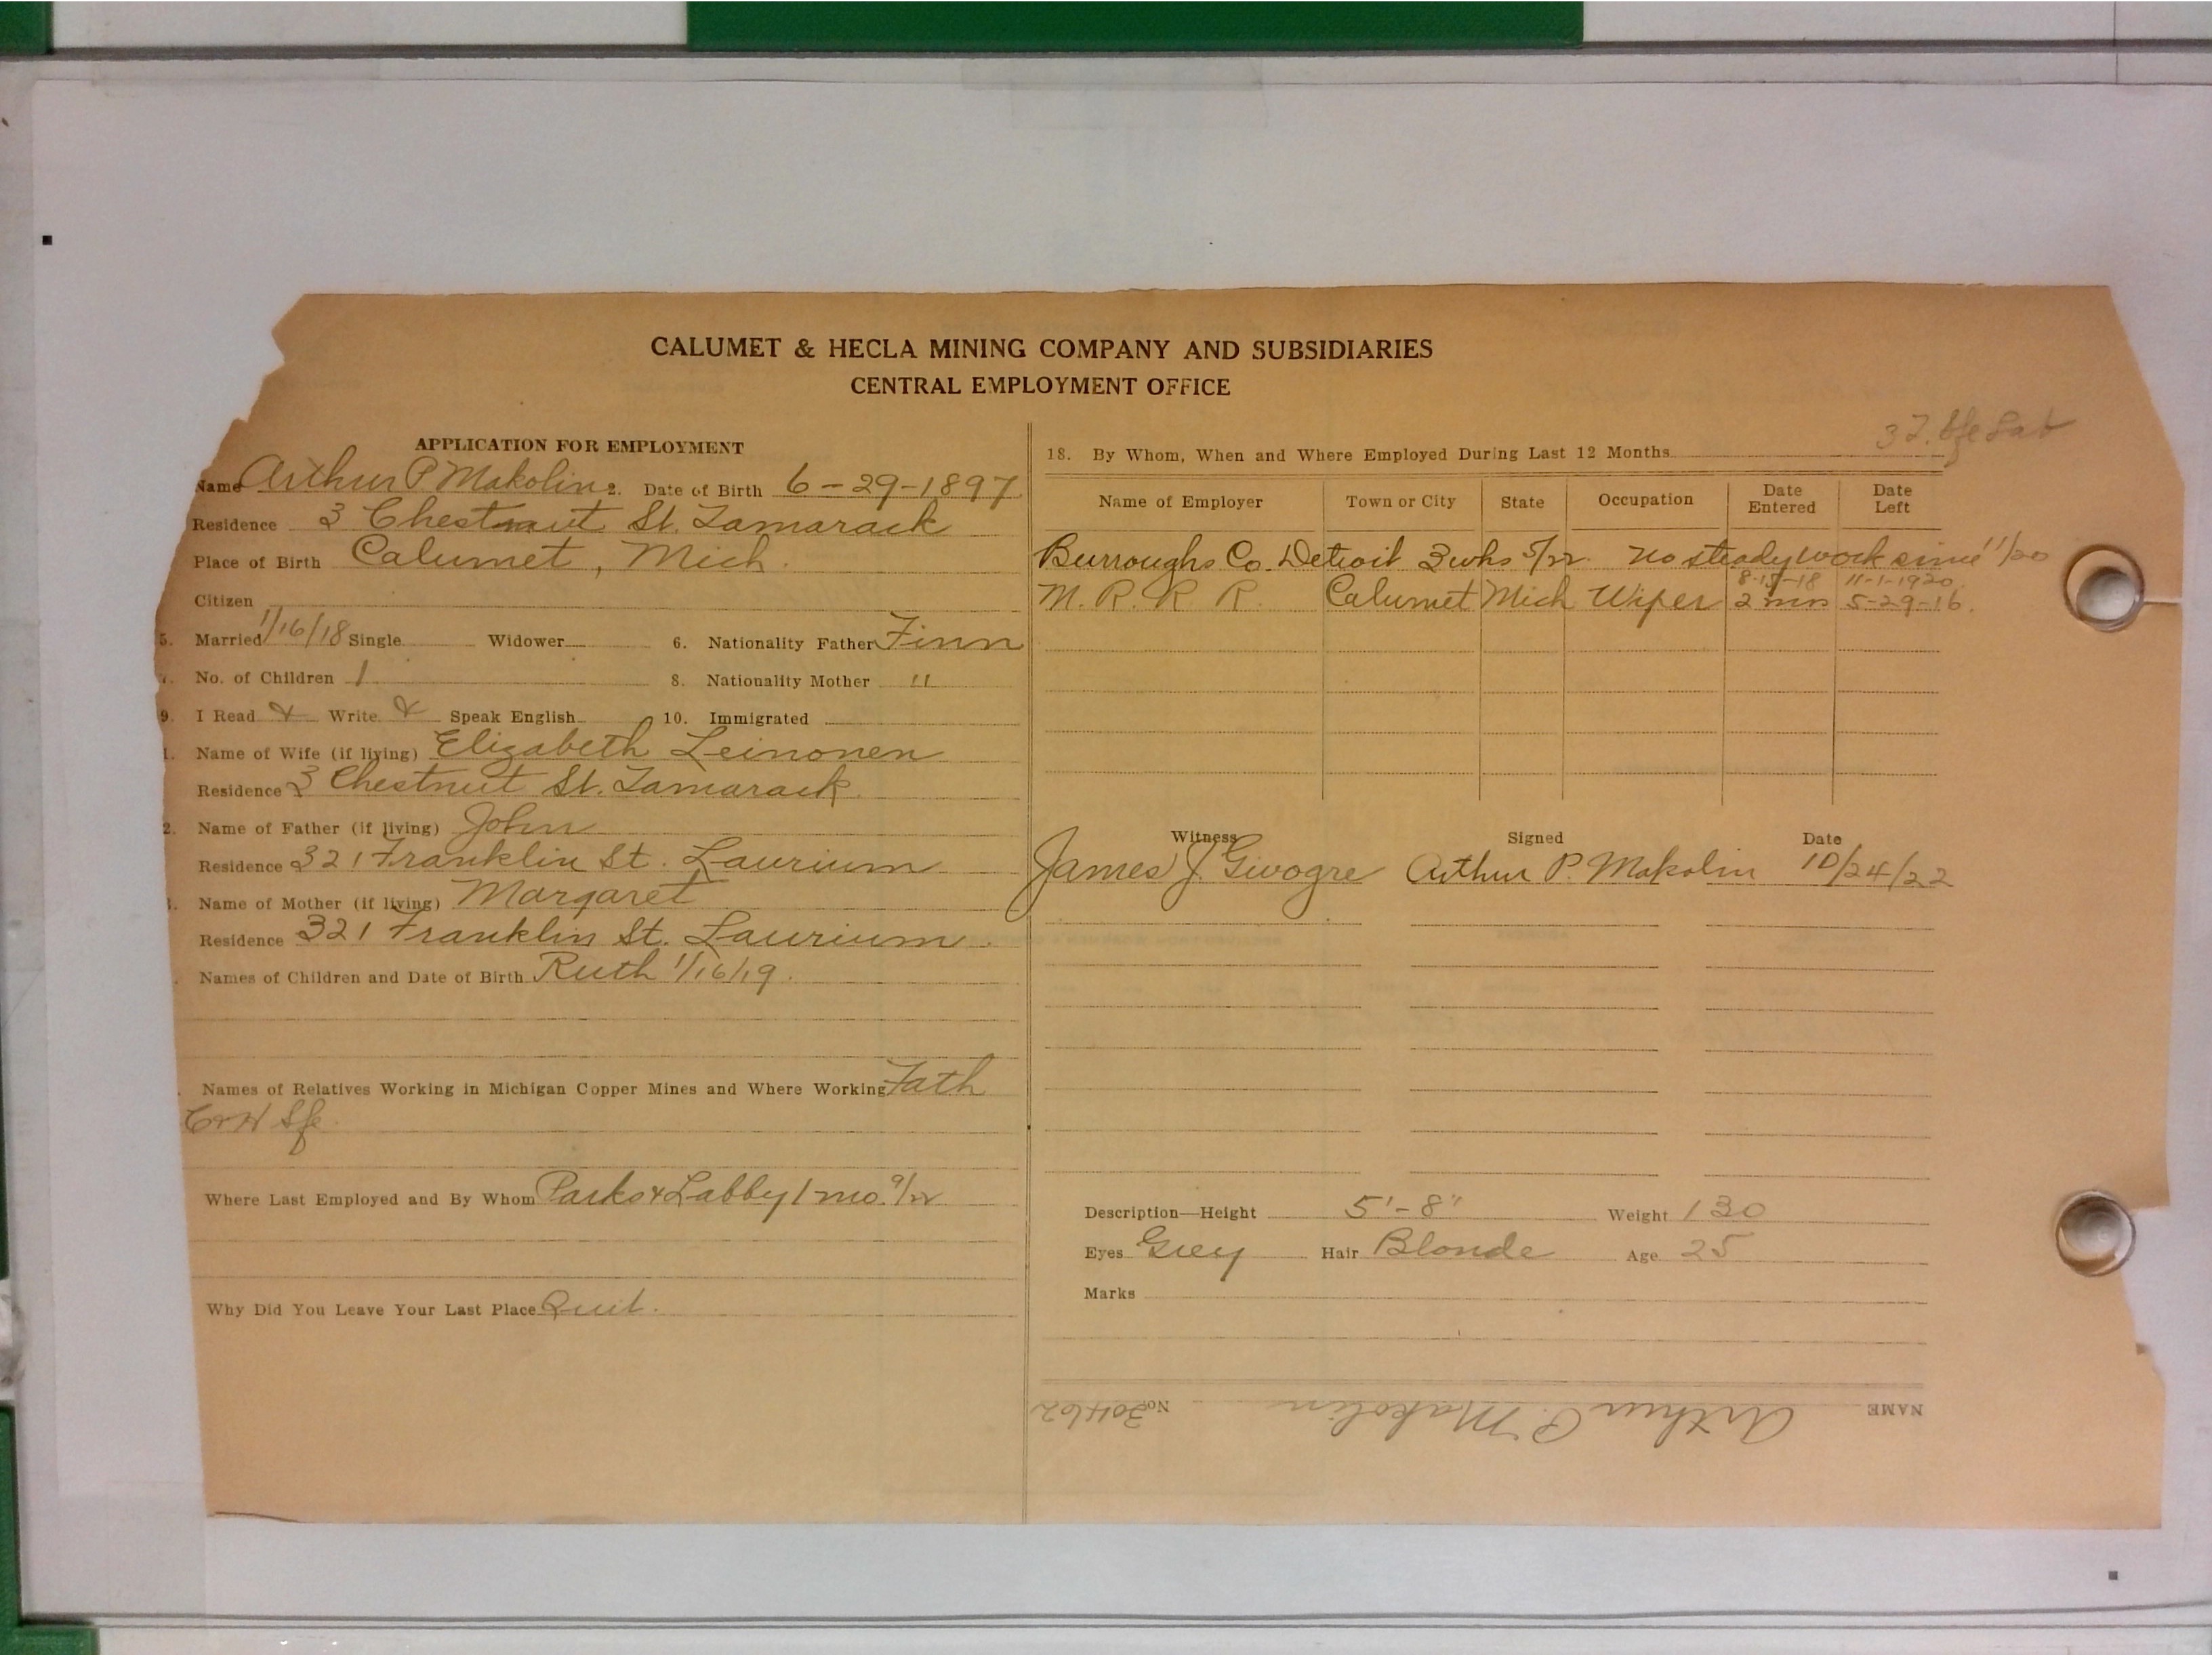 CALUMET & HECLA MINING COMPANY AND SUBSIDIARIES
CENTRAL EMPLOYMENT OFFICE
APPLICATION FOR EMPLOYMENT
Name Arthur P Makolin 2. Date of Birth 6-29-1897
Residence 3 Chestnut St. Tamarack
Place of Birth Calumet, Mich.
Citizen
5. Married 1/16/18 Single Widower 6. Nationality Father Finn
No. of Children 1 8. Nationality Mother "
9. I Read & Write & Speak English 10. Immigrated
1. Name of Wife (if living) Elizabeth Leinonen
Residence 3 Chestnut St. Tamarack
2. Name of Father (if living) John
Residence 321 Franklin St. Laurium
Name of Mother (if living) Margaret
Residence 321 Franklin St. Laurium
Names of Children and Date of Birth Ruth 1/16/19.
Names of Relatives Working in Michigan Copper Mines and Where Working Fath
C&H Sfe
Where Last Employed and By Whom Parks & Labby 1 mo. 9/22
Why Did You Leave Your Last Place Quit.
18. By Whom, When and Where Employed During Last 12 Months
Name of Employer Town or City State Occupation Date Entered Date Left
Burroughs Co. Detroit 3 wks 5/22. No steady work since 11/20
8-15-18 11-1-1920
M. R. R R. Calumet Mich Wiper 2 mos 5-29-16.
Witness Signed Date
James J. Givogre Arthur P. Makolin 10/24/22
Description—Height 5'-8" Weight 130
Eyes Grey Hair Blonde Age 25
Marks
NAME Arthur P. Makolin No. 30462